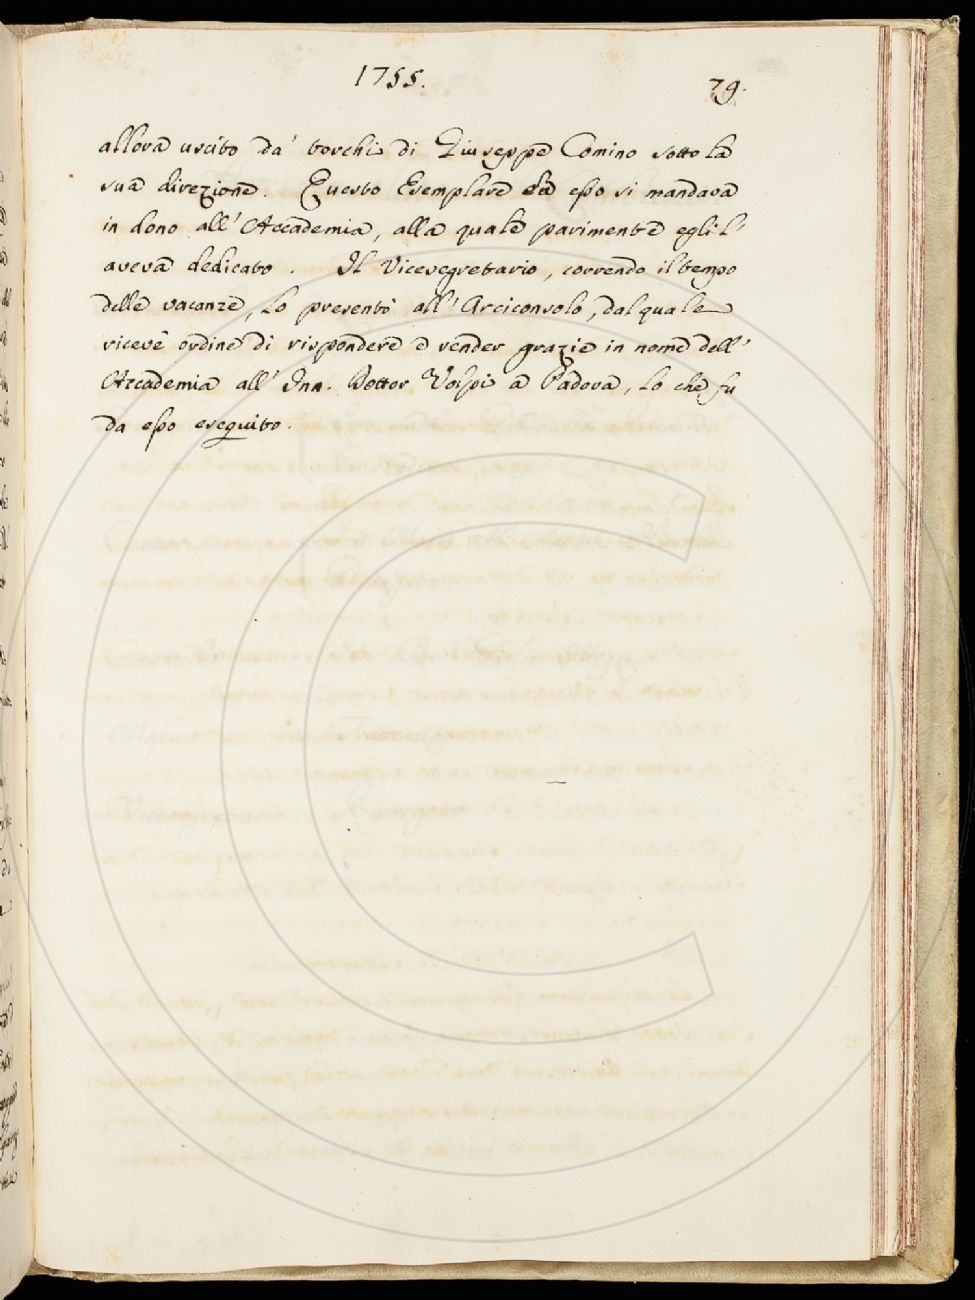 1755.
79.
allora uscito da' torchi di Giuseppe Comino sotto la
sua direzione. Questo Esemplare da esso si mandava
in dono all'Accademia, alla quale parimente egli l'
aveva dedicato. Il Vicesegretario, correndo il tempo
delle vacanze, lo presentò all'Arciconsolo, dal quale
ricevè ordine di rispondere e render grazie in nome dell'
Accademia all' Inn. Dottor Volpi a Padova, lo che fu
da esso eseguito.